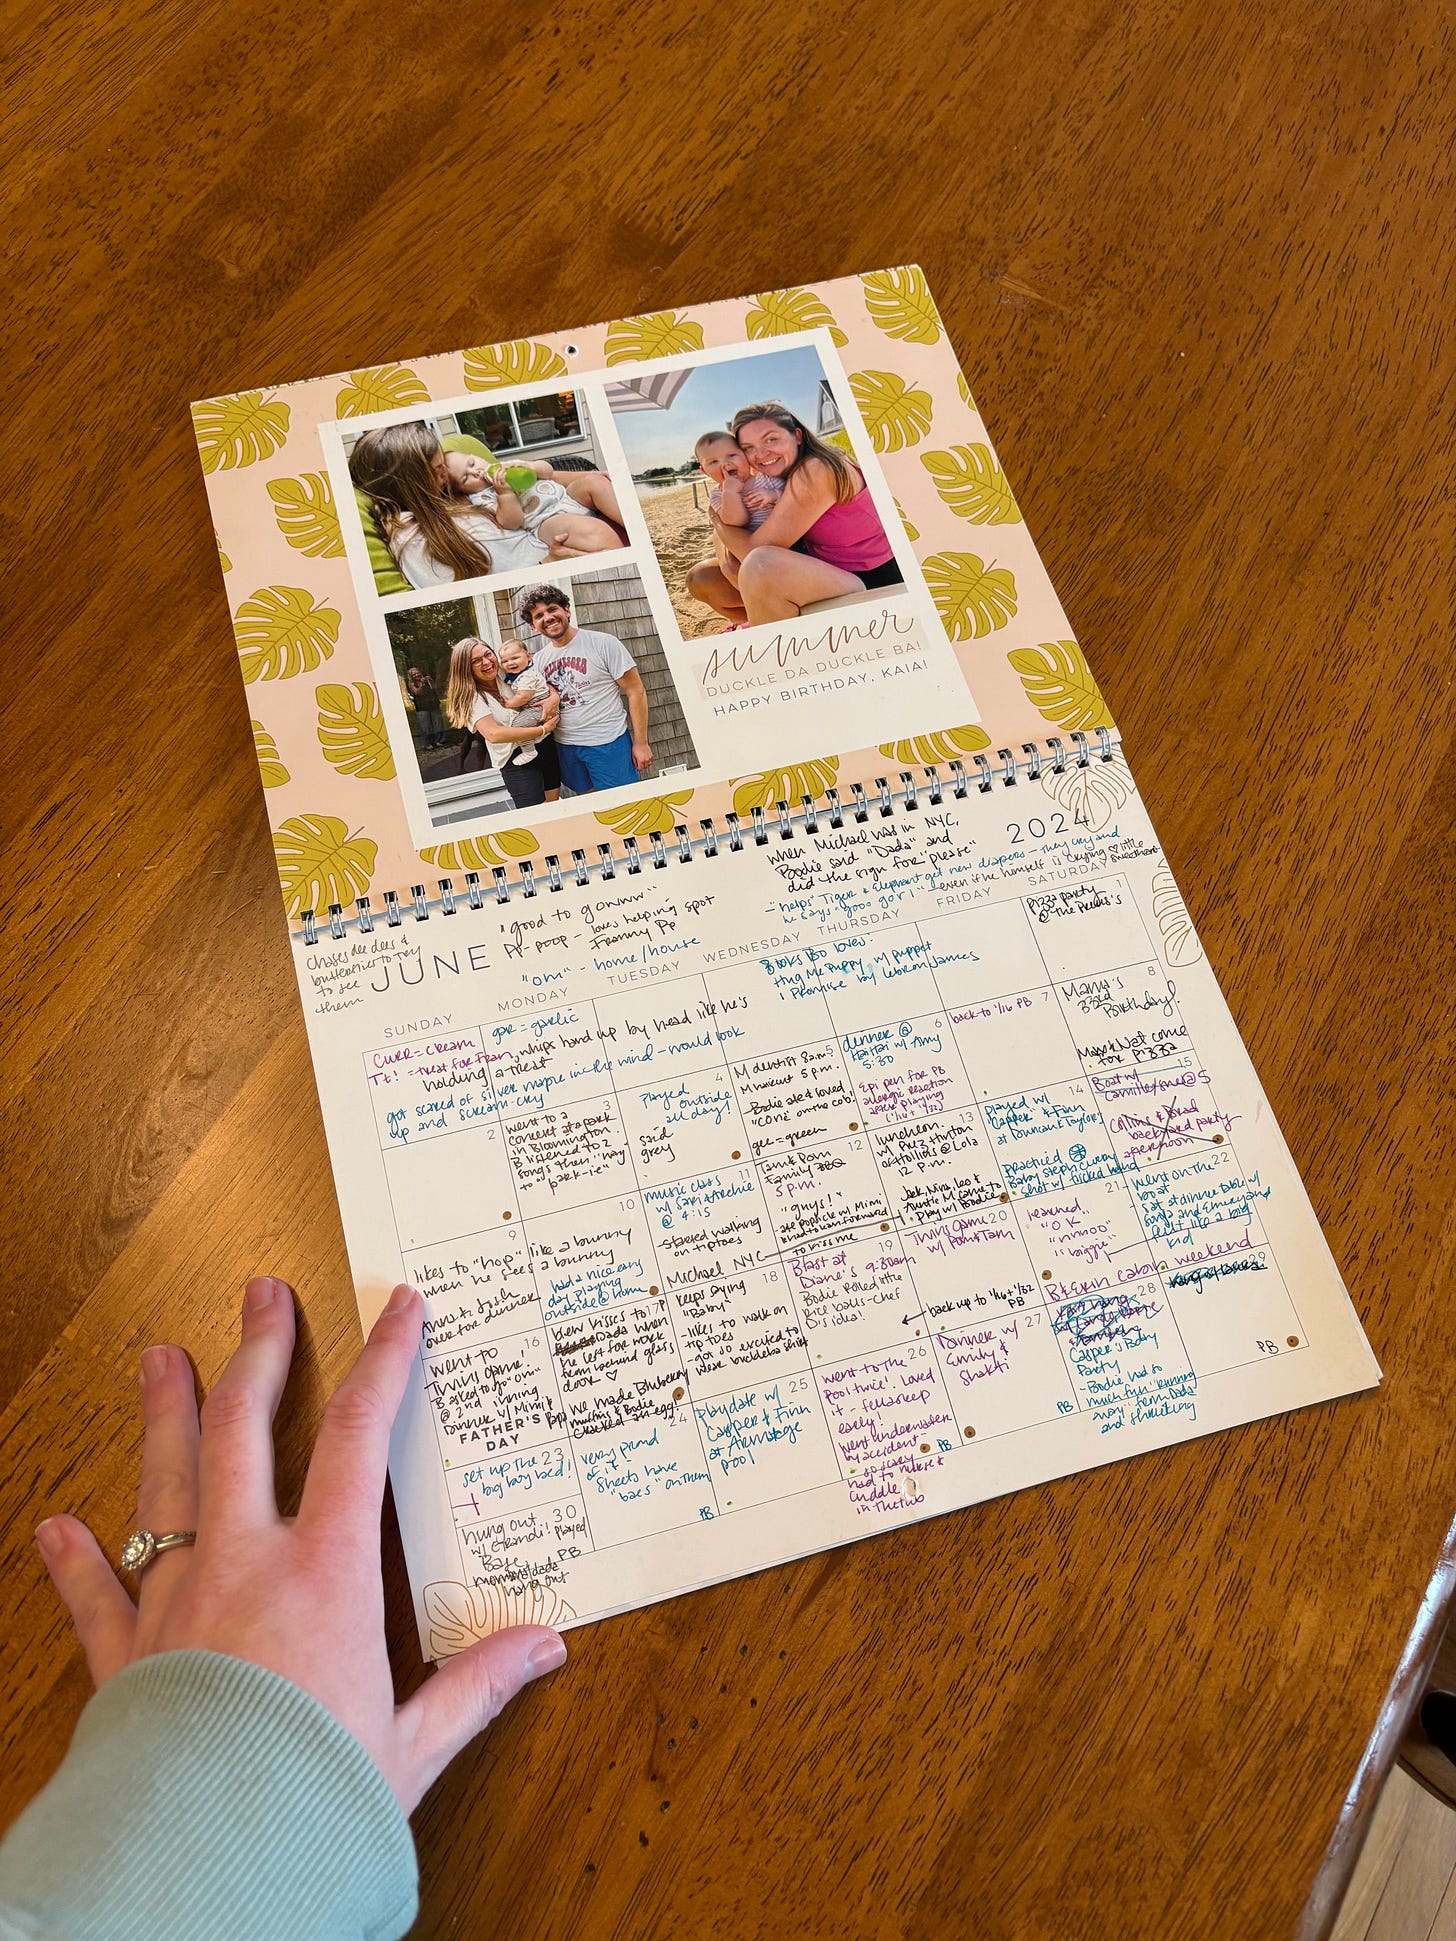 summer
DUCKLE DA DUCKLE BA!
HAPPY BIRTHDAY, KAIA!
2024
when Michael was in NYC,
Bodie said "Dada" and
did the sign for "please"
- "helps" Tiger & Elephant get new diapers - they cry and
he says "gooo gorl" - even if he himself is crying ♡ little
sweetheart
"good to gowww"
pp-poop - loves helping spot
Franny PP
"om" - home/house
chases dee dees &
butterflies to try
to see
them
JUNE
SUNDAY
MONDAY
TUESDAY
WEDNESDAY
THURSDAY
FRIDAY
SATURDAY
Books Bo loves:
Hug Me Puppy w/ puppet
I Promise by Lebron James
1
Pizza party
@ The
CURR = cream
gar = garlic
Tt! = treat for Fran, whips hand up by head like he's
holding a treat
got scared of silver maple in the wind - would look
up and scream-cry
2
3
went to a
concert at a park
in Bloomington.
B listened to 2
songs then "nay"
to "park-ie"
4
Played
outside
all day!
said
grey
5
M dentist 8am
M haircut 5 p.m.
Bodie ate & loved
"cone" on the cob!
gee = green
6
dinner @
Hai Hai w/ Amy
5:30
Epi pen for PB
allergic reaction
after playing
(1/16 + 1/32)
7
back to 1/16 PB
8
Mama's
33rd
Birthday!
Max & Nat come
for pizza
9
likes to "hop" like a bunny
when he sees a bunny
Anna & Josh
over for dinner
10
had a nice easy
day playing
outside @ home
11
music class
w/ Sam & Archie
@ 4:15
-started walking
on tiptoes
Michael NYC
12
Tam & Pam
Family BBQ
5 p.m.
"guys!"
- ate popsicle w/ Mimi
& had to lean forward
to kiss me
13
luncheon
w/ Prez Hinton
of Hollins @ Lola
12 p.m.
Jack, Nina, Leo &
Auntie M came to
play w/ Bodie
14
Played w/
"Capper" & Finn
at Duncan & Taylor's
Practiced
Baby Steph Curry
shot w/ tucked hand
15
Boat w/
Camille & me @ 5
Collins & Brad
backyard party
afternoon
16
went to
Twins game!
B asked to go "om"
@ 2nd inning
Dinner w/ Mimi &
Papa
FATHER'S
DAY
17
blew kisses to
Dada when
he left for work
from behind glass
door ♡
we made Blueberry
muffins & Bodie
cracked an egg!
18
keeps saying
"Baby"
- likes to walk on
tip toes
- got so excited to
wear buckleba shirt
19
Blast at
Diane's 9:30am
Bodie rolled little
rice balls - chef
D's idea!
20
Twins game
w/ Pam & Tam
← back up to 1/16 + 1/32
PB
21
learned
"OK"
"nnnoo"
"biggie"
B & Erin cabin weekend
22
- went on the
boat
- sat at dinner table w/
Sonja and Emery and
felt like a big
kid
23
set up the
big boy bed!
24
very proud
of it!
Sheets have
"baes" on them
PB
25
playdate w/
Casper & Finn
at Armitage
pool
26
went to the
pool twice! Loved
it - fell asleep
early!
went underwater
by accident -
so scary
had to nurse &
cuddle
in the tub
PB
27
Dinner w/
Emily &
Shakti
PB
28
Casper's Bday
Party
- Bodie had so
much fun "running
away" from Dada
and shrieking
29
PB
30
hung out
w/ Grandi! Played
Base
PB
hang out